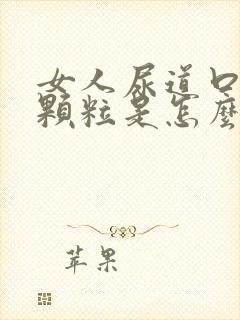 女人尿道口
顆粒是怎麼
苹果